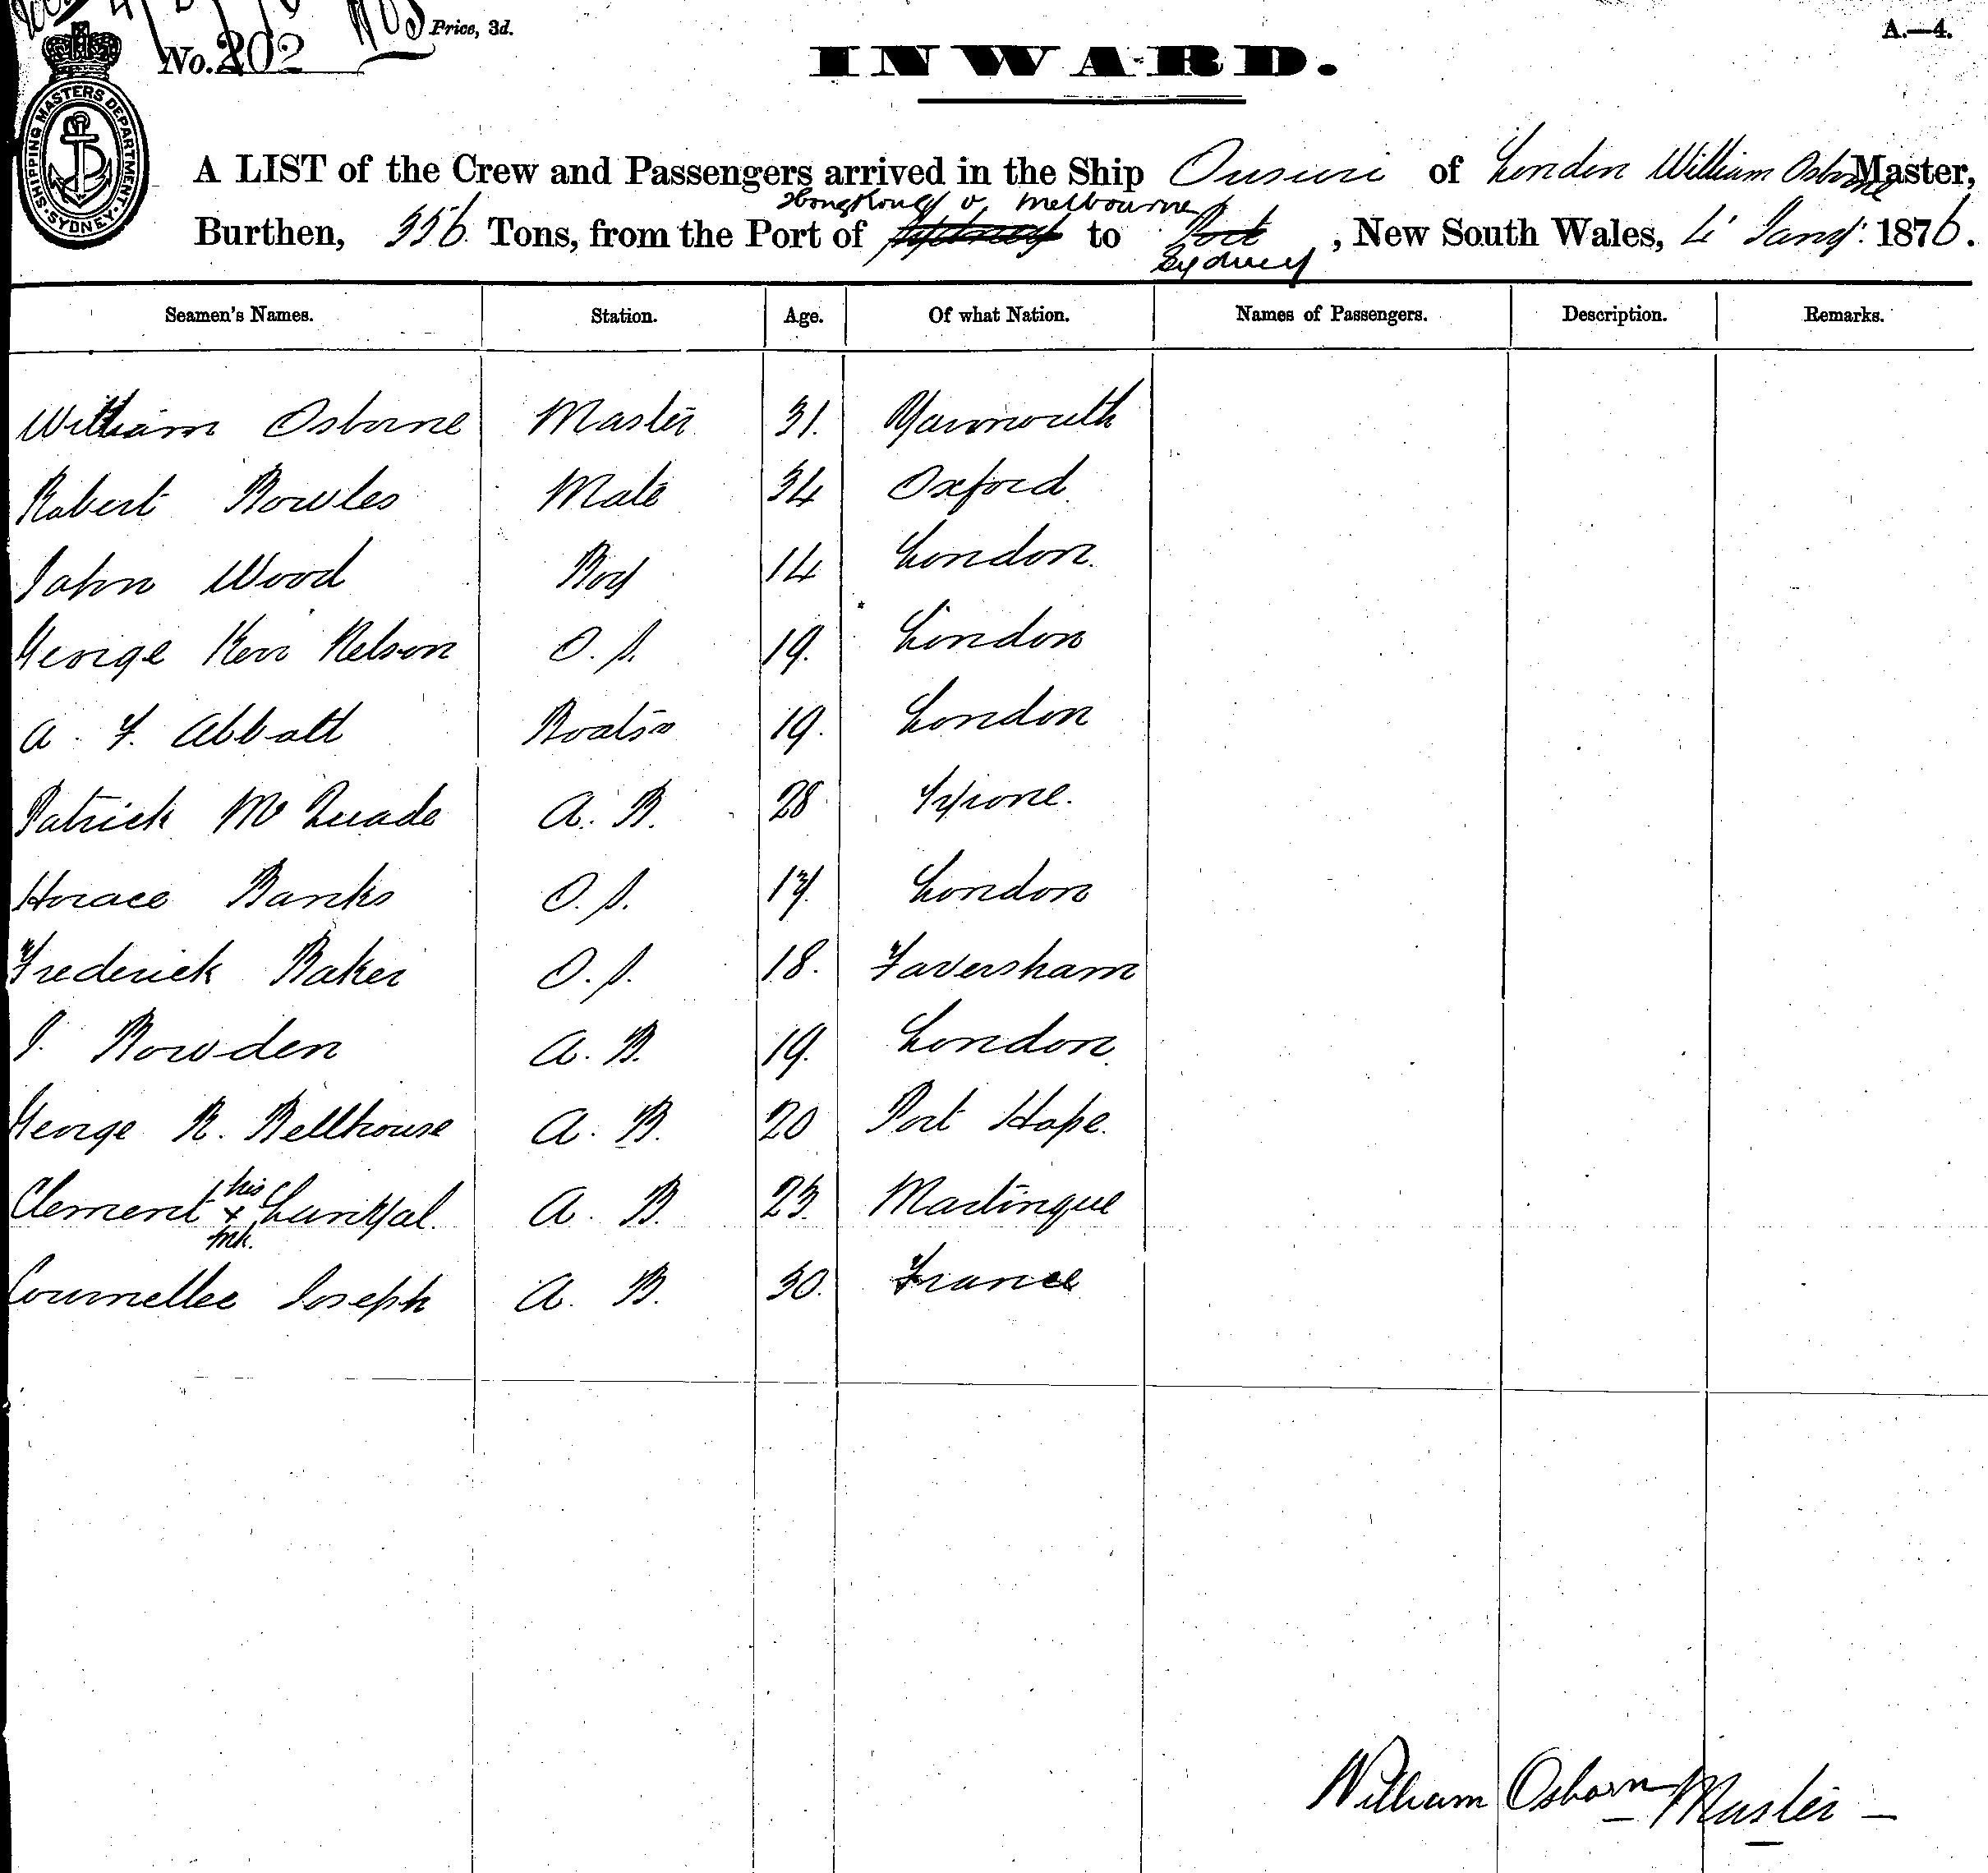 No. 202 Price, 3d. A.—4.
INWARD.
SHIPPING MASTERS DEPARTMENT · SYDNEY ·
A LIST of the Crew and Passengers arrived in the Ship Ousuri of London William Osborne Master,
Hong Kong v. Melbourne
Burthen, 356 Tons, from the Port of Sydney to Port , New South Wales, 4' Jany: 1876.
Sydney
Seamen's Names. Station. Age. Of what Nation. Names of Passengers. Description. Remarks.
William Osborne Master 31. Yarmouth
Robert Bowles Mate 34 Oxford.
John Wood Boy 14 London.
George Kerr Nelson O. S. 19. London
A. F. Abbott Boatsn 19. London
Patrick McQuade A. B. 28 Tyrone.
Horace Banks O. S. 17. London
Frederick Baker O. S. 18. Faversham
J. Bowden A. B. 19. London.
George R. Bellhouse A. B. 20 Port Hope.
his
Clement x A. B. 23. Martinque
mk.
Joseph A. B. 30. France
William Osborn Master